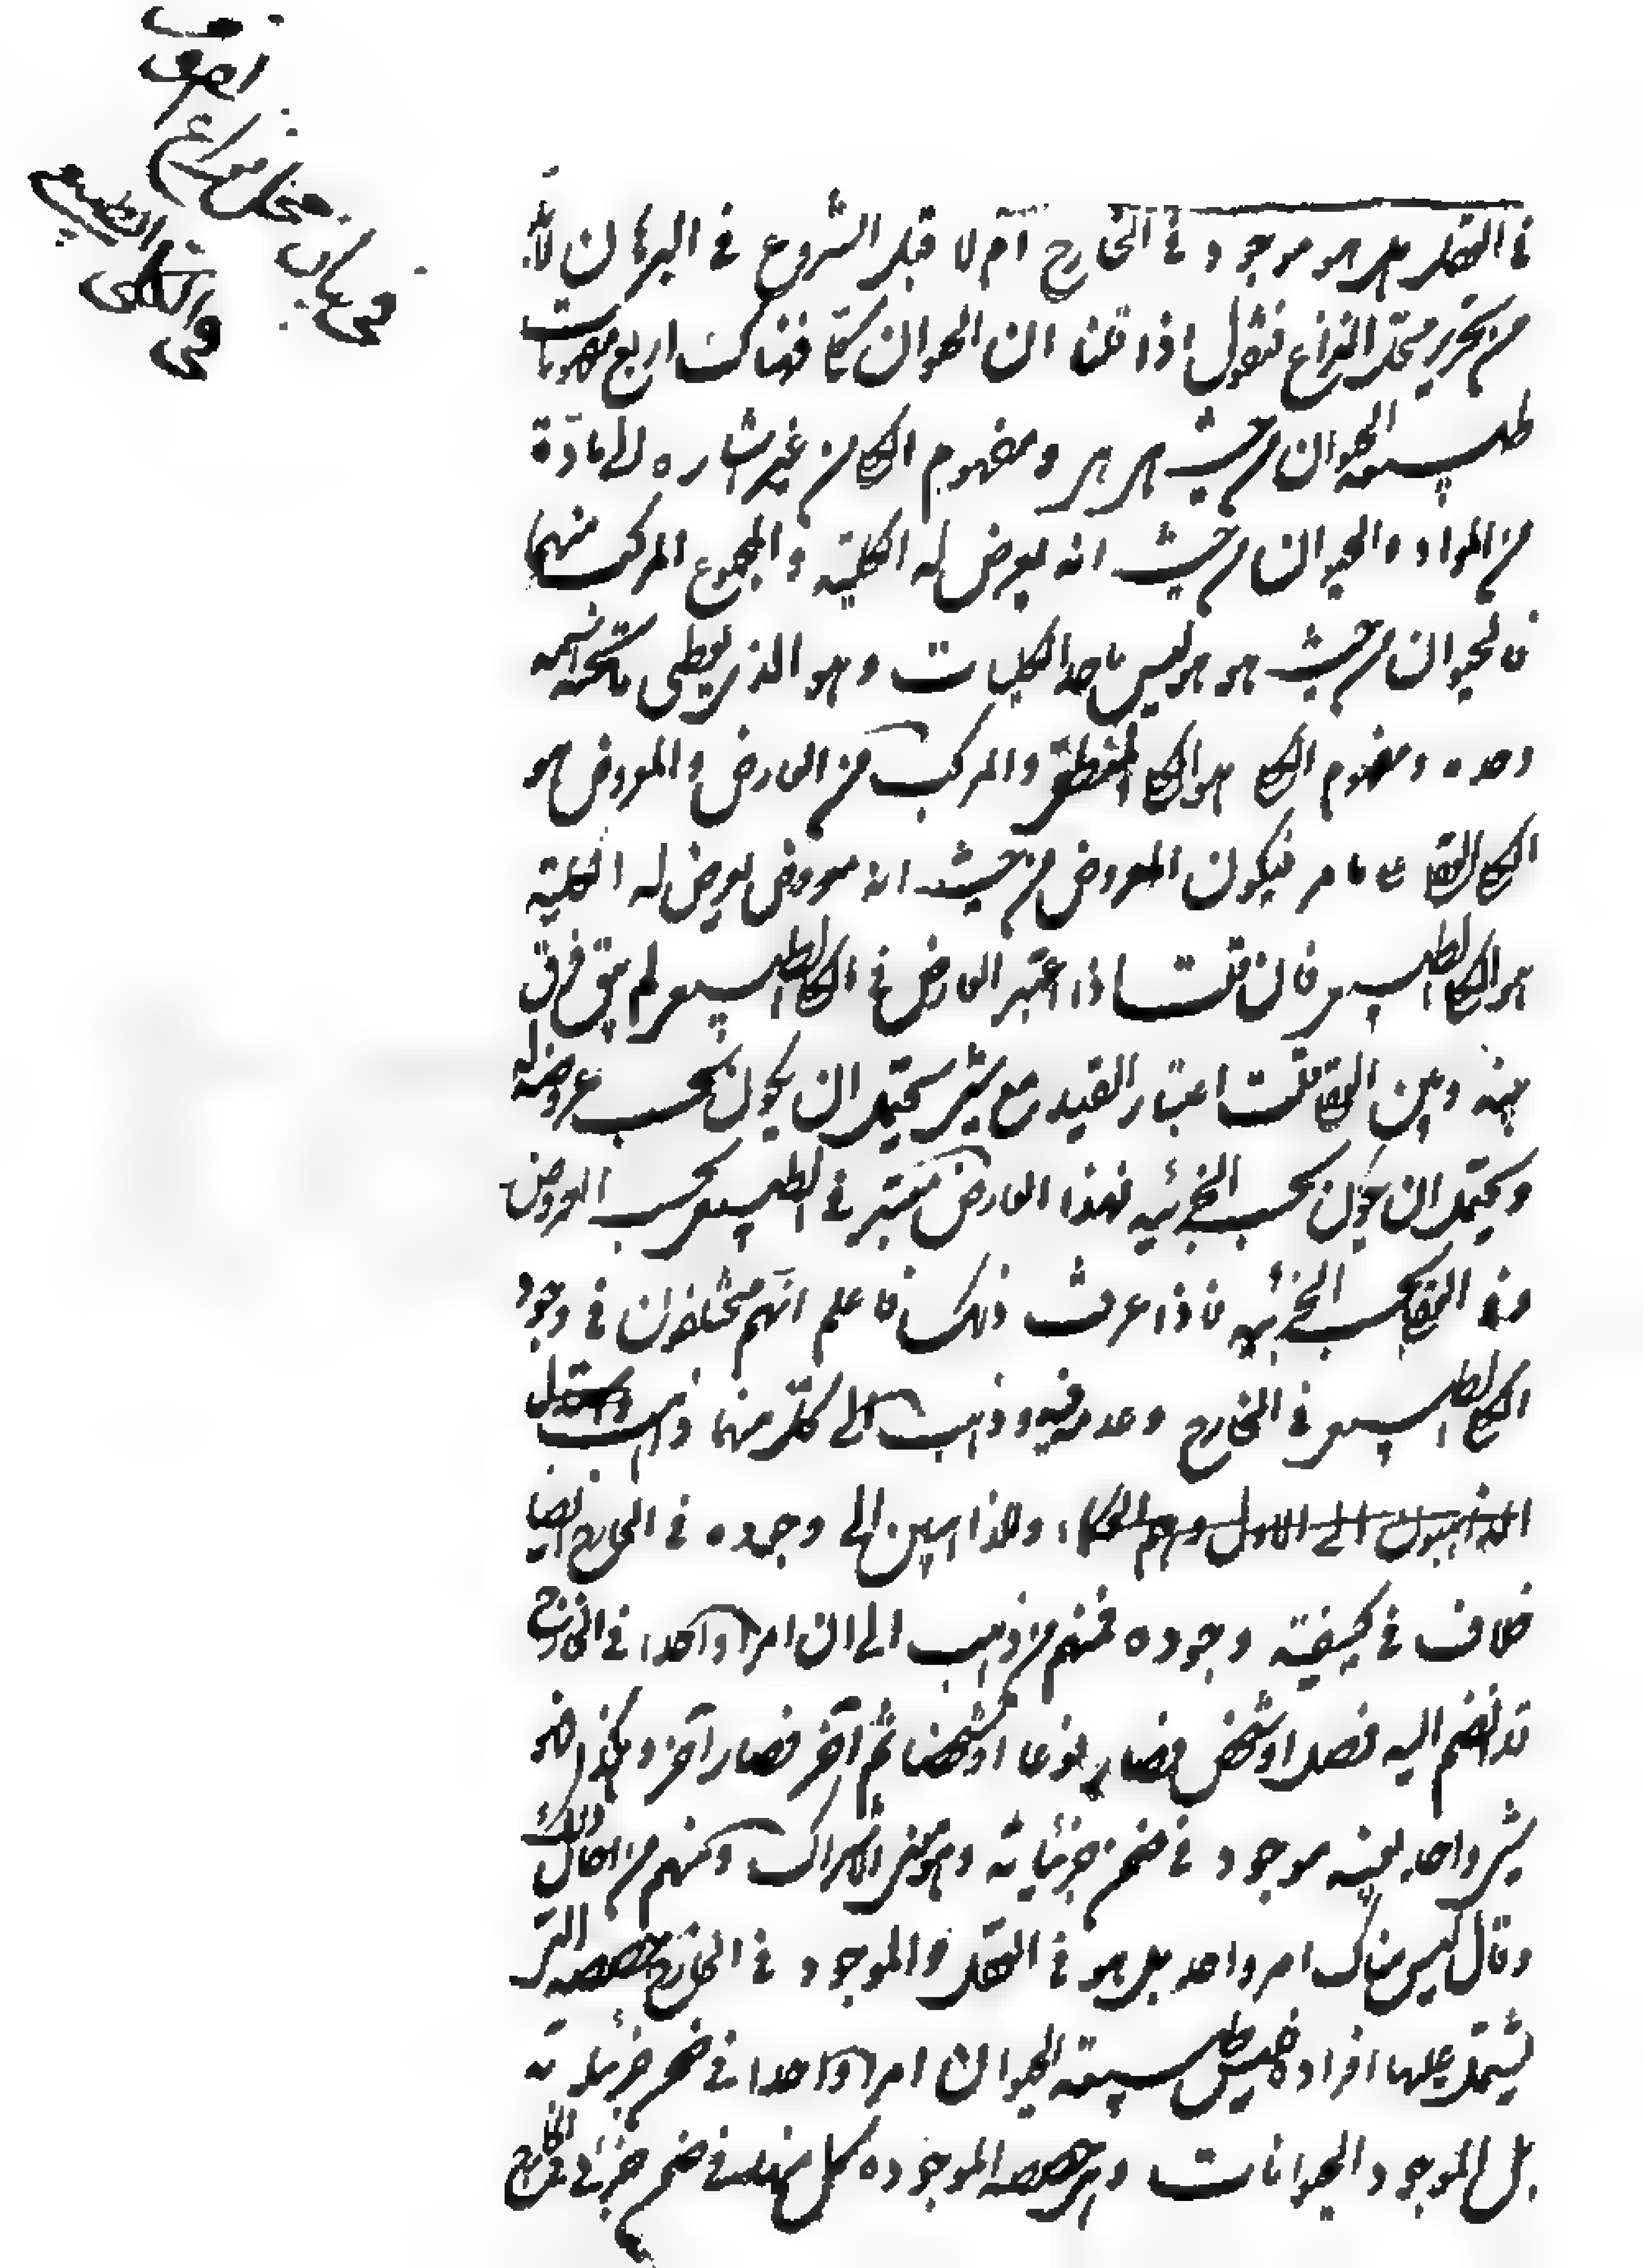 في العقل هل هو موجود في الخارج ام لا قبل الشروع في البرهان لابد
من تحرير محل النزاع فنقول اذا قلنا ان الحيوان كلي فهناك اربع مفهومات
طبيعة الحيوان من حيث هي هي ومفهوم الكلي من غير اشارة الى مادة
من المواد والحيوان من حيث انه يعرض له الكلية والمجموع المركب منهما
فالحيوان من حيث هو هو ليس باحد الكليات وهو الذي يعطي ما تحته اسمه
وحده ومفهوم الكلي هو الكلي المنطقي والمركب من العارض والمعروض هو
الكلي العقلي فيكون المعروض من حيث انه معروض يعرض له الكلية
هو الكلي الطبيعي فان قلت اذا اعتبر العارض في الكلي الطبيعي لم يبق فرق
بينه وبين العقلي قلت اعتبار القيد مع شيء يحتمل ان يكون بحسب عروضه له
ويحتمل ان يكون بحسب الجزئيه فهذا العارض معتبر في الطبيعي بحسب العروض
وفي العقلي بحسب الجزئيه فاذا عرفت ذلك فاعلم انهم مختلفون في وجود
الكلي الطبيعي في الخارج وعدمه فيه وذهب الى كل منهما ذاهب
الذاهبون الى الاول وهم الحكماء وللذاهبين الى وجوده في الخارج ايضا
خلاف في كيفية وجوده فمنهم من ذهب الى ان امرا واحدا في الخارج
قد انضم اليه فصل او تشخص فصار نوعا او شخصا ثم آخر فصار آخر وهكذا فهو
شيء واحد بعينه موجود في ضمن جزئياته وهو معنى الاشتراك ومنهم من احال ذلك
وقال ليس هناك امر واحد بل هو في العقل والموجود في الخارج حصصه التي
يشتمل عليها افراده فليس طبيعة الحيوان امرا واحدا في ضمن جزئياته
بل الموجود الحيوانات وهي حصصه الموجوده كل منها في ضمن جزئي في الخارج
في بيان
محل نزاع
في الكلي
الطبيعي